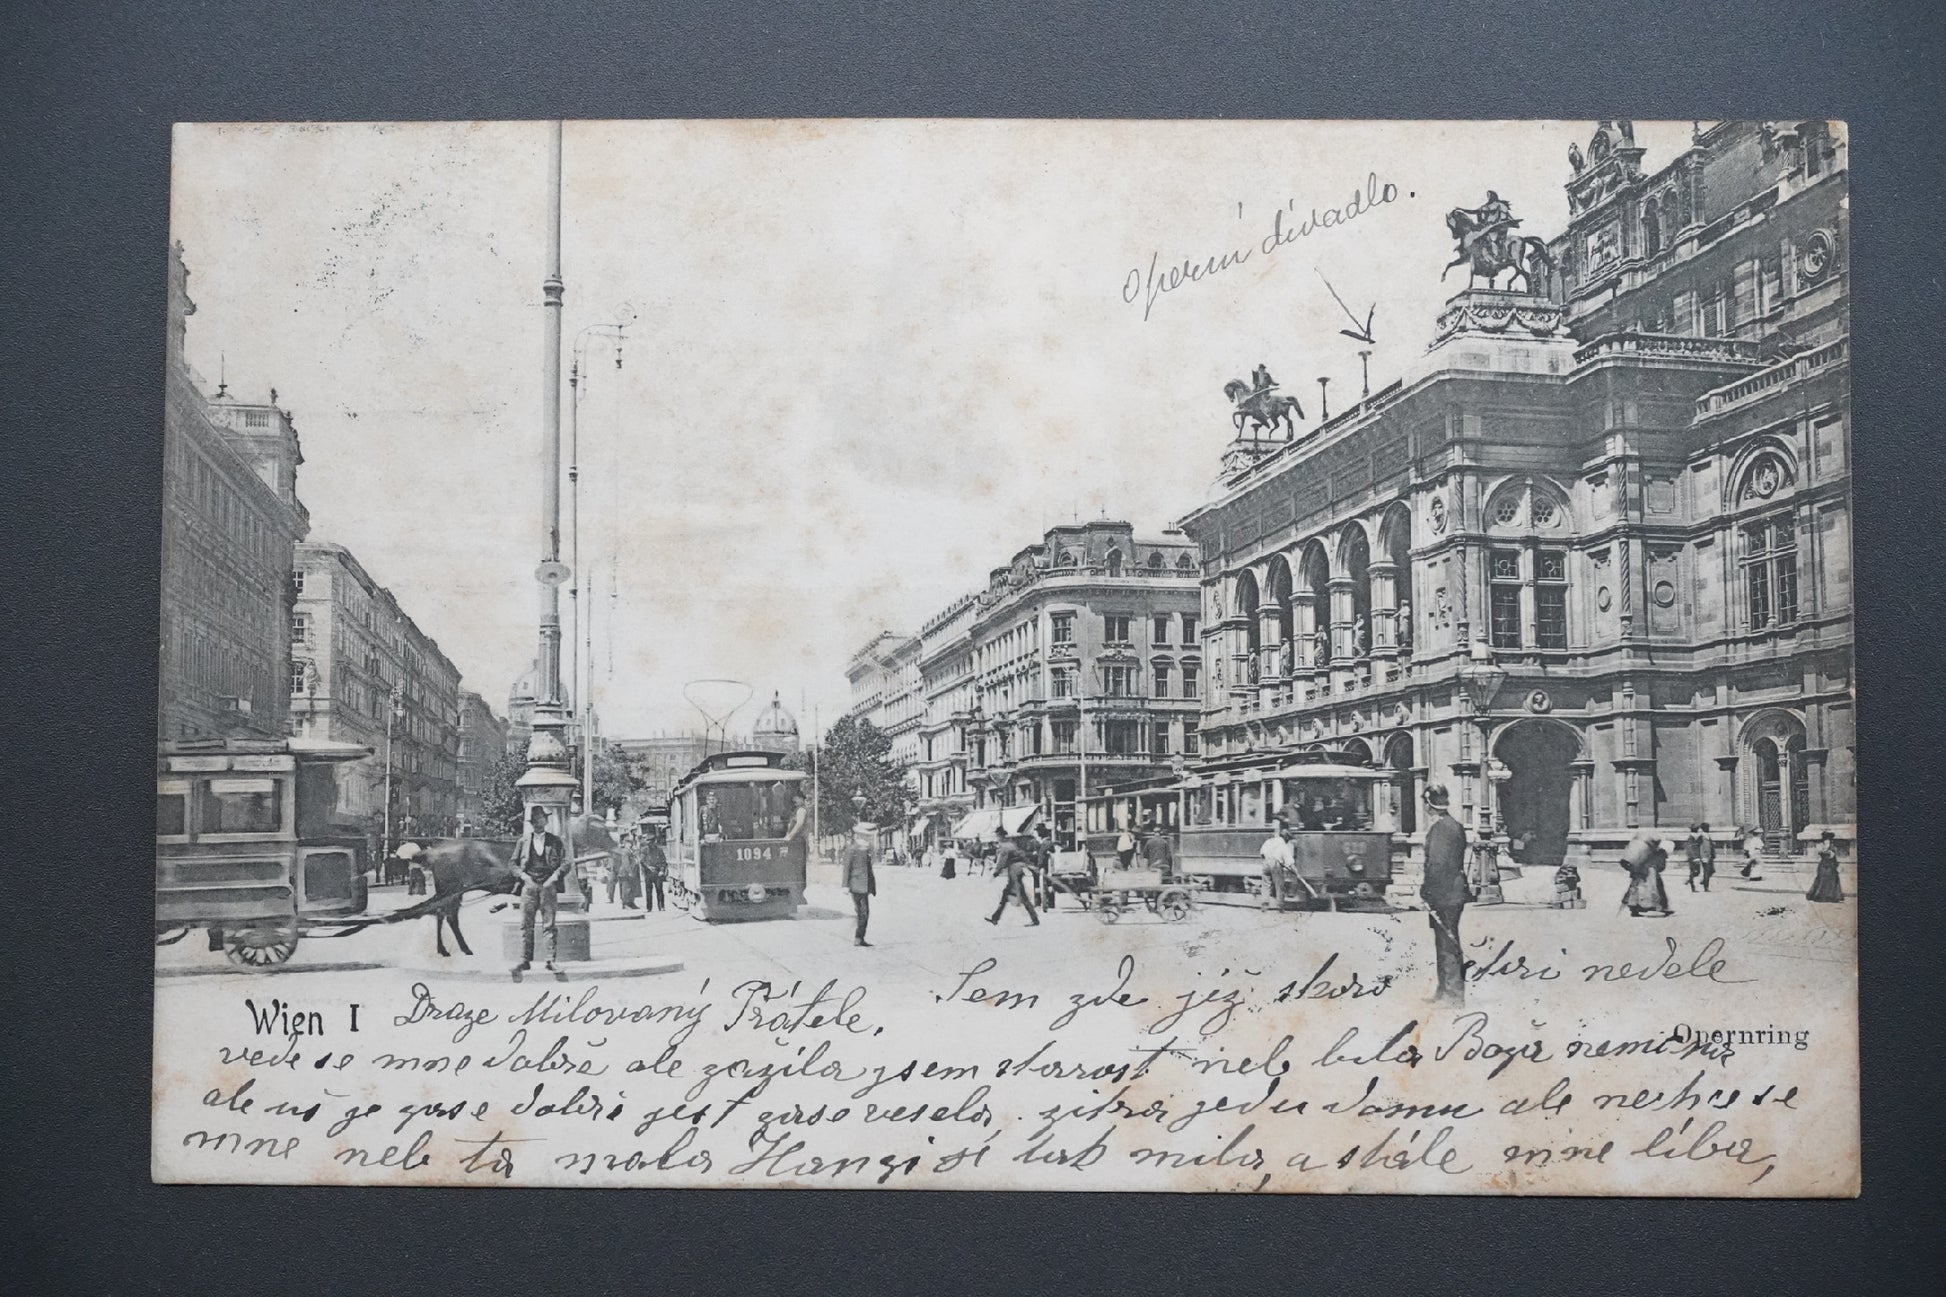 Operní divadlo.
1094
Wien I
Opernring
Draze Milovaný Přátele. Sem zde již skoro čtvri nedele
vede se mne dobře ale zažila jsem starost neb bila Boža nemocna
ale už je zase dobři jest zase vesela, zitra jedu domu ale nechce se
mne neb ta mala Hanzi si tak mila, a stále mne líba,